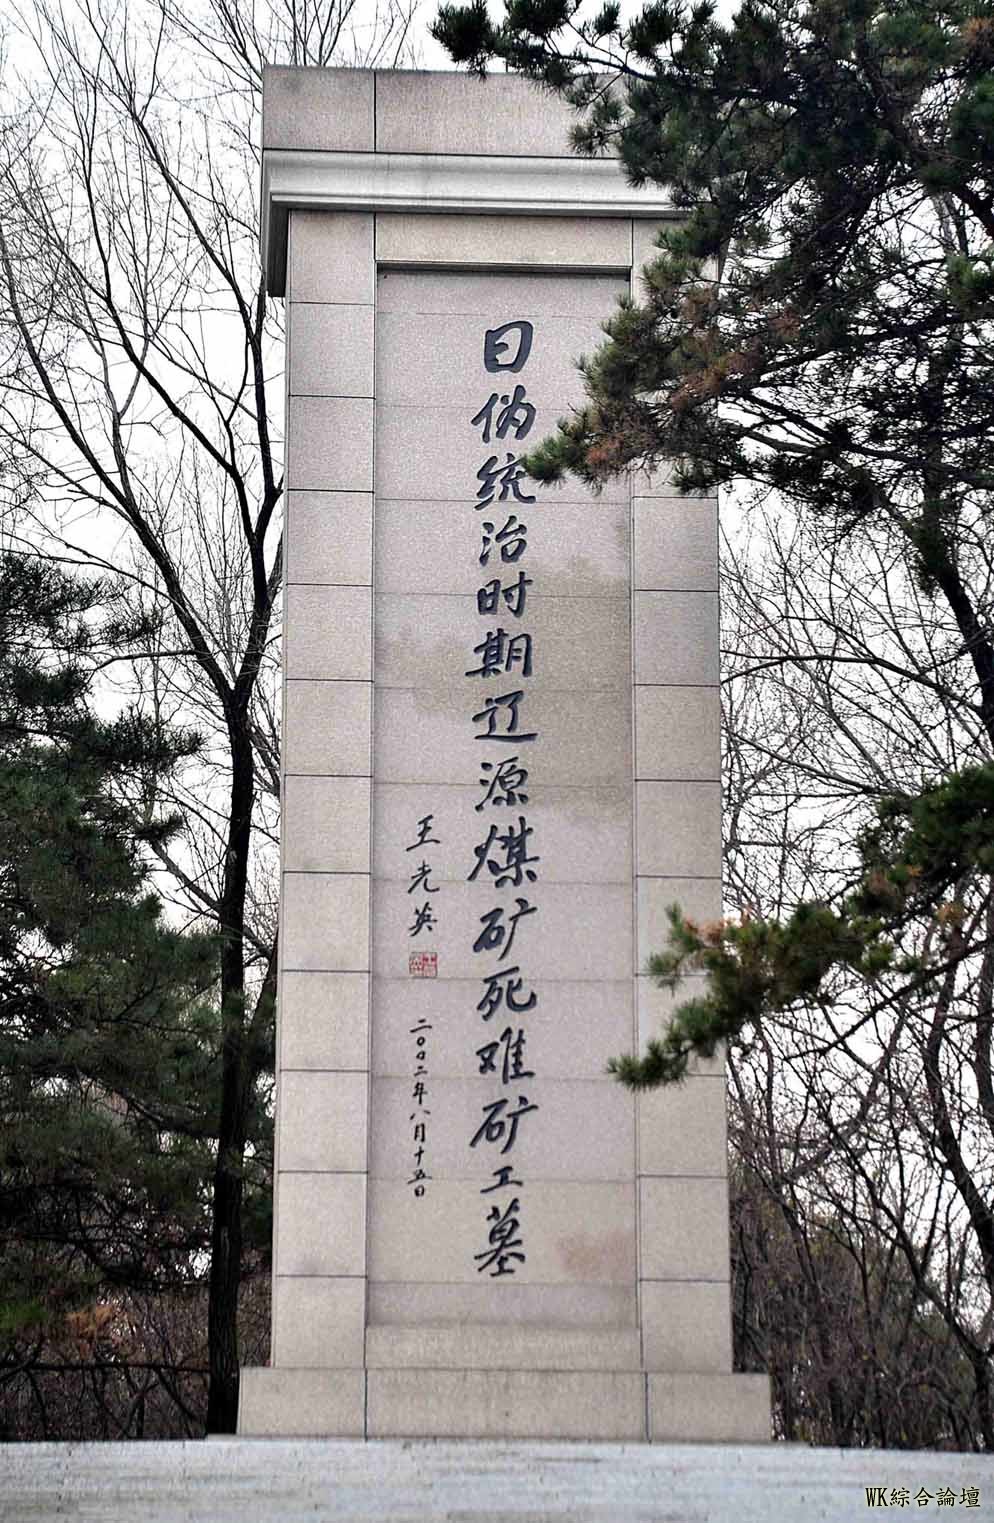 日伪统治时期辽源煤矿死难矿工墓
王光英
二〇〇二年八月十五日
WK綜合論壇